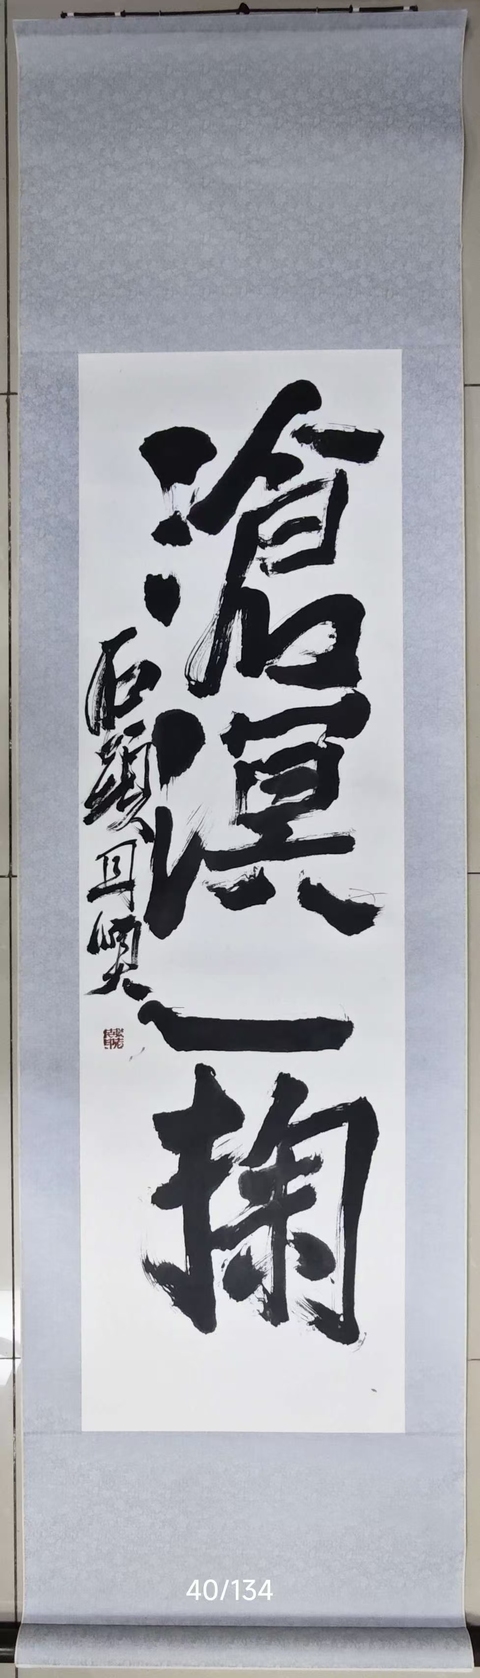 滄溟一掬
石頭
40/134